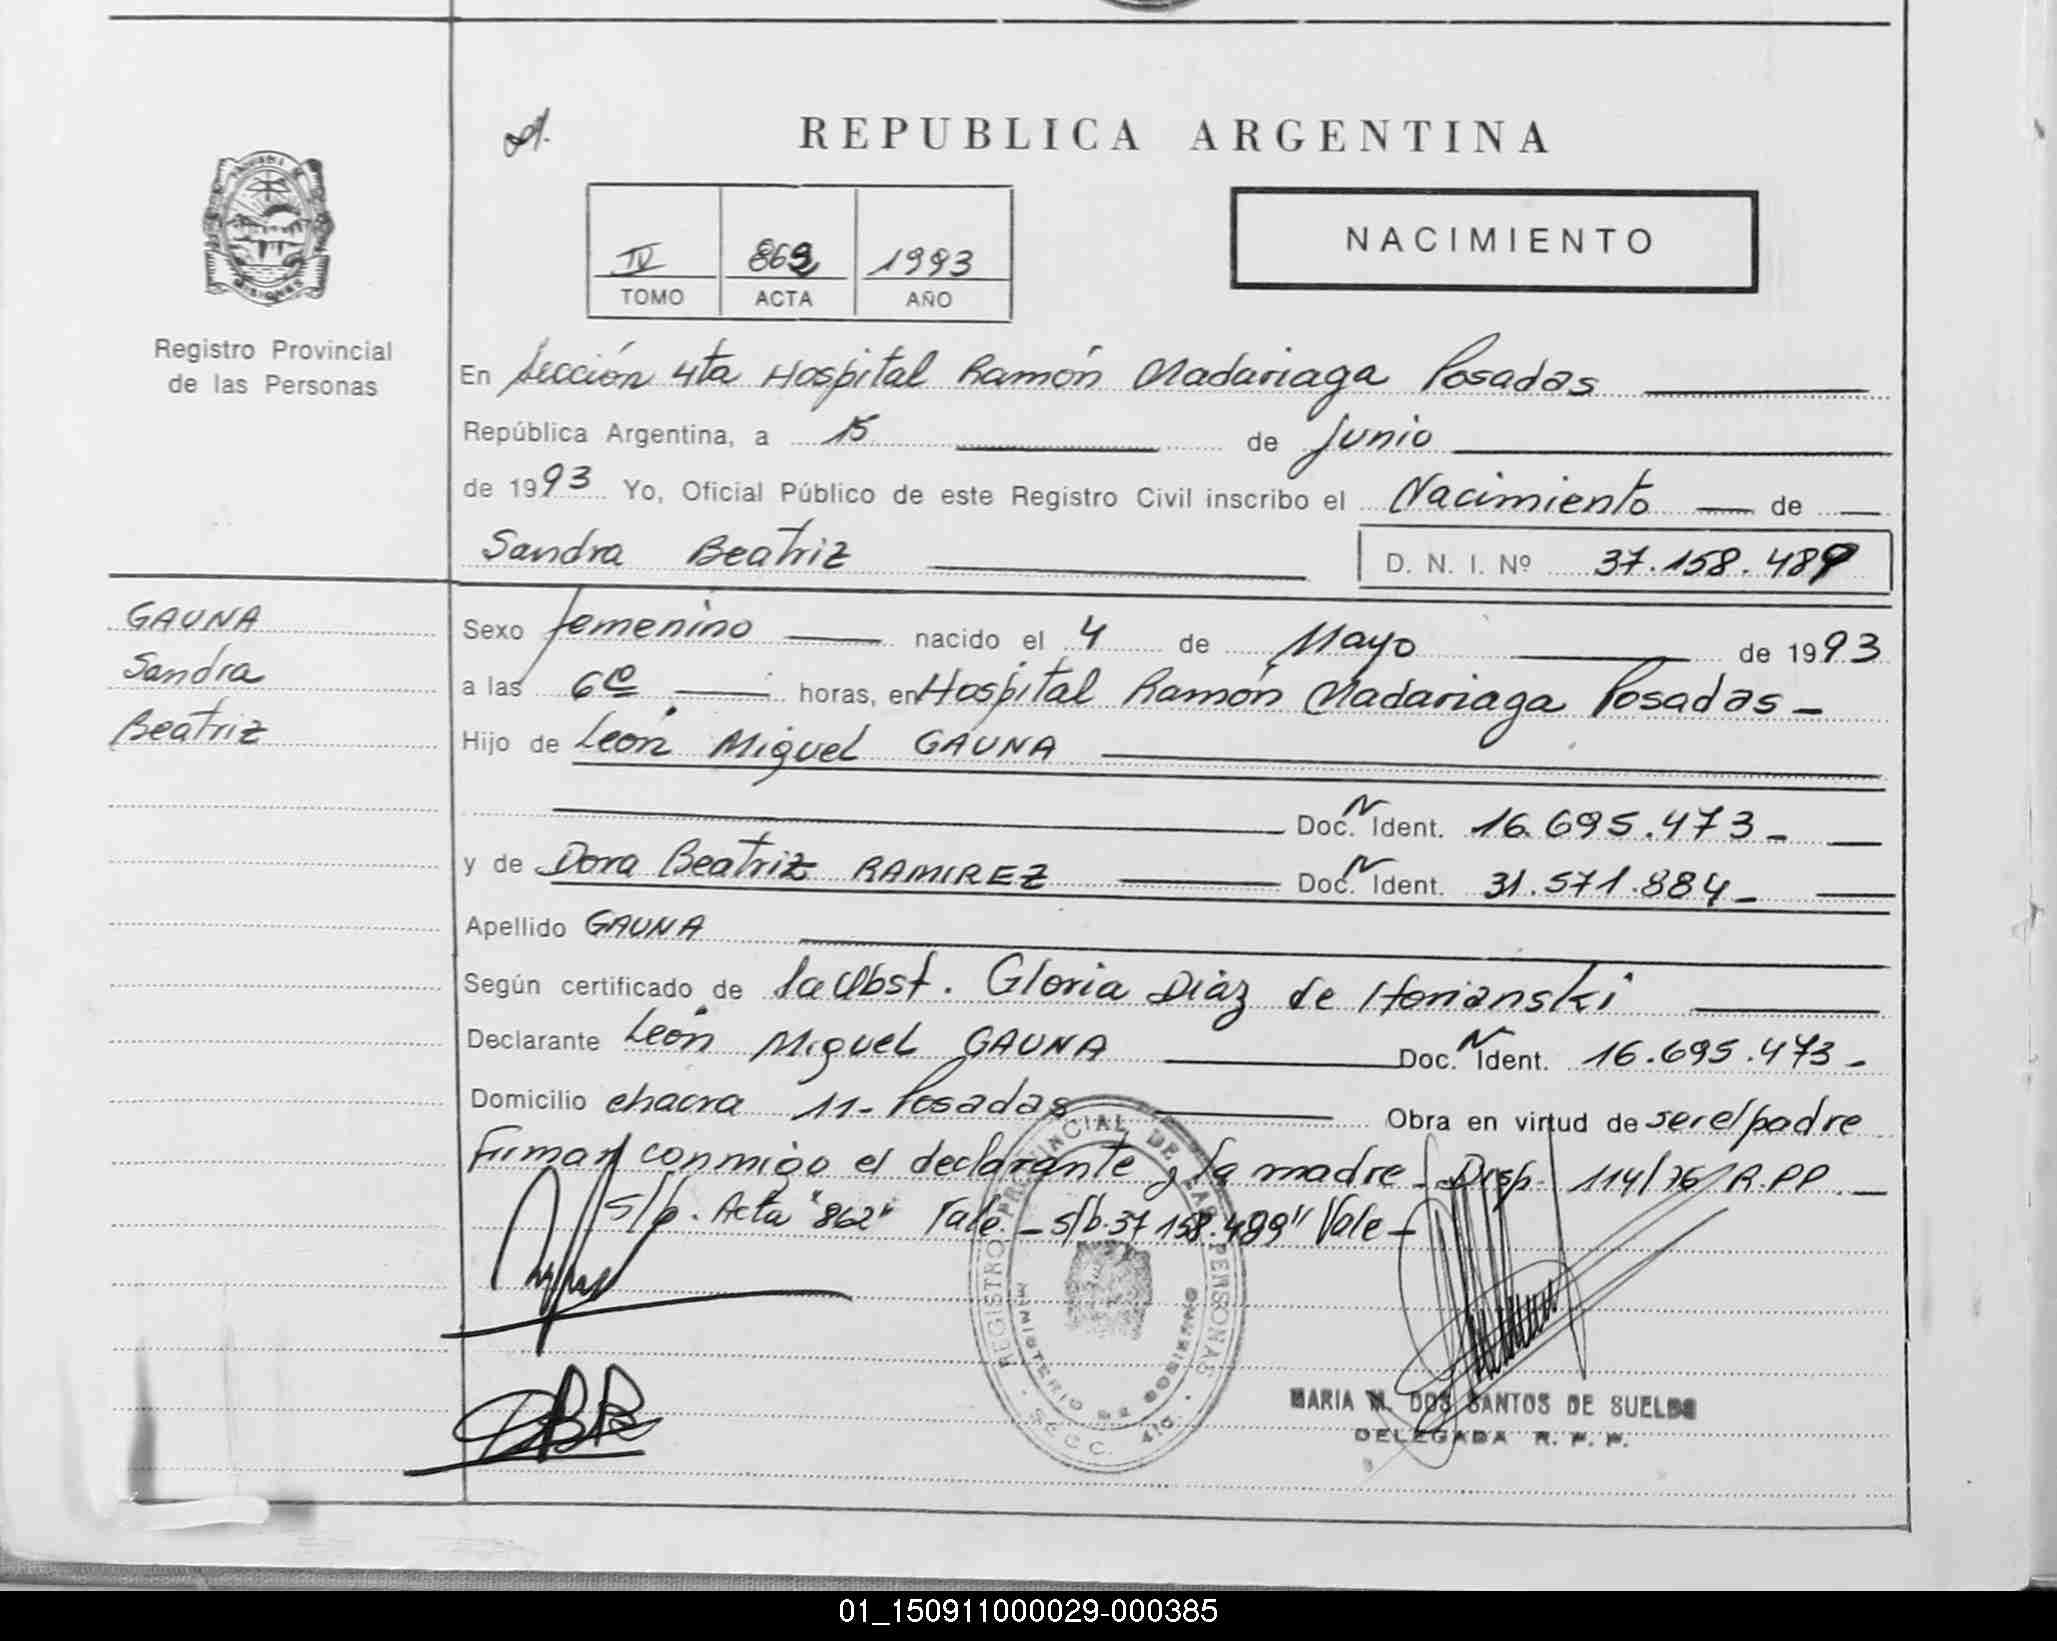 REPUBLICA ARGENTINA
IV 862 1993
TOMO ACTA AÑO
NACIMIENTO
Registro Provincial
de las Personas
En Sección 4ta Hospital Ramón Madariaga Posadas
República Argentina, a 15 de Junio
de 1993 Yo, Oficial Público de este Registro Civil inscribo el Nacimiento de
Sandra Beatriz D. N. I. Nº 37.158.489
GAUNA
Sandra
Beatriz
Sexo femenino nacido el 4 de Mayo de 1993
a las 6 horas, en Hospital Ramón Madariaga Posadas-
Hijo de León Miguel GAUNA
Doc. N Ident. 16.695.473-
y de Dora Beatriz RAMIREZ Doc. N Ident. 31.571.884-
Apellido GAUNA
Según certificado de la Obst. Gloria Diaz de Horianski
Declarante León Miguel GAUNA Doc. N Ident. 16.695.473-
Domicilio chacra 11- Posadas Obra en virtud de ser el padre
Firman conmigo el declarante y la madre - Disp. 114/76 R.P.P.
S/b. Acta "862" Vale. - s/b. 37.158.489" Vale -
REGISTRO PROVINCIAL DE LAS PERSONAS
MINISTERIO DE GOBIERNO
SECC. 4ta.
MARIA M. DOS SANTOS DE SUELDO
DELEGADA R. P. P.
01_150911000029-000385